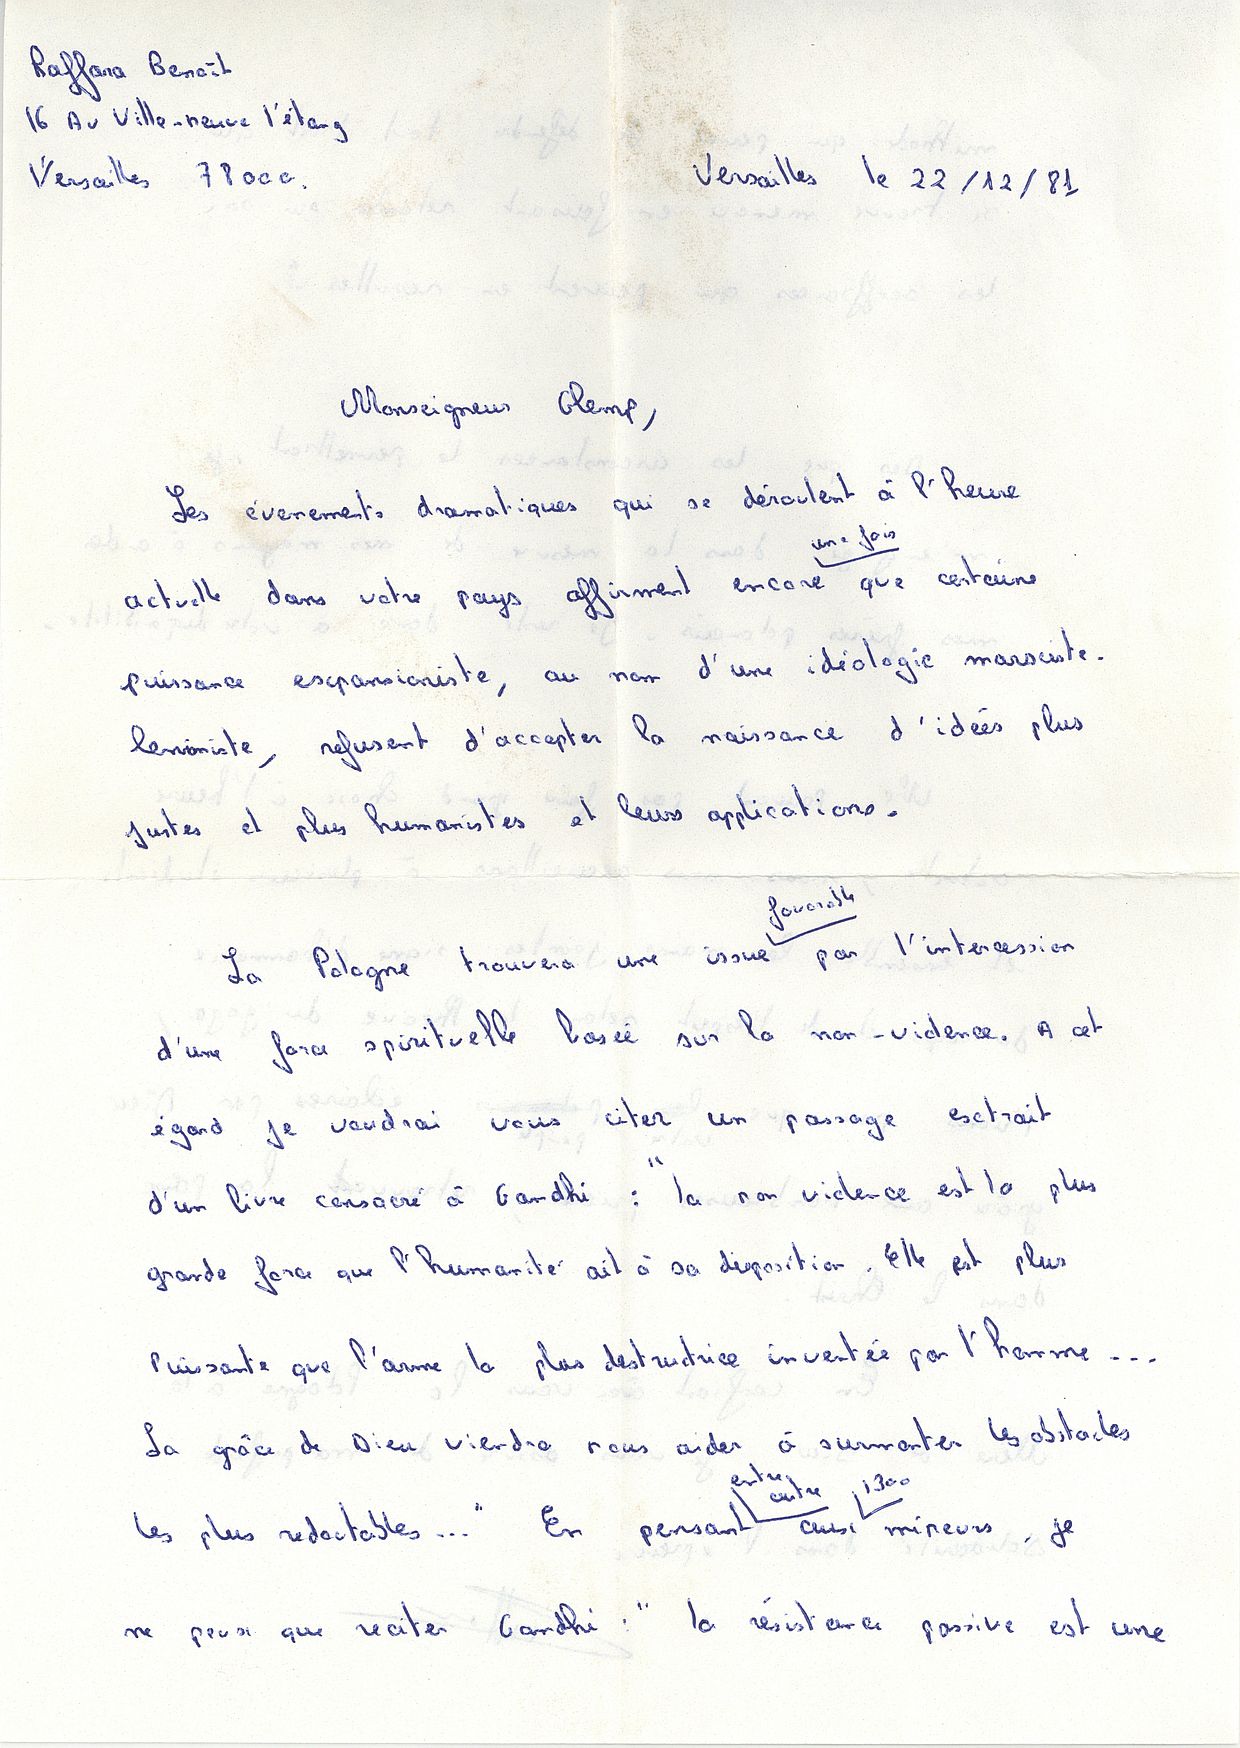 Raffara Benoît
16 Av Ville-neuve l'étang
Versailles 78000.
Versailles le 22/12/81
Monseigneur Glemp,
Les évenements dramatiques qui se déroulent à l'heure
une fois
actuelle dans votre pays affirment encore que certaine
puissance expansioniste, au nom d'une idéologie marxiste.
leniniste, refusent d'accepter la naissance d'idées plus
justes et plus humanistes et leurs applications.
favorable
La Pologne trouvera une issue par l'intercession
d'une force spirituelle basée sur la non-violence. A cet
égard je voudrai vous citer un passage extrait
d'un livre consacré à Gandhi : "la non violence est la plus
grande force que l'humanité ait à sa disposition. Elle est plus
puissante que l'arme la plus destructrice inventée par l'homme ...
La grâce de Dieu viendra nous aider à surmonter les obstacles
entre autre 1300
les plus redoctables..." En pensant aussi mineurs, je
ne peux que reciter Gandhi : "la résistance passive est une